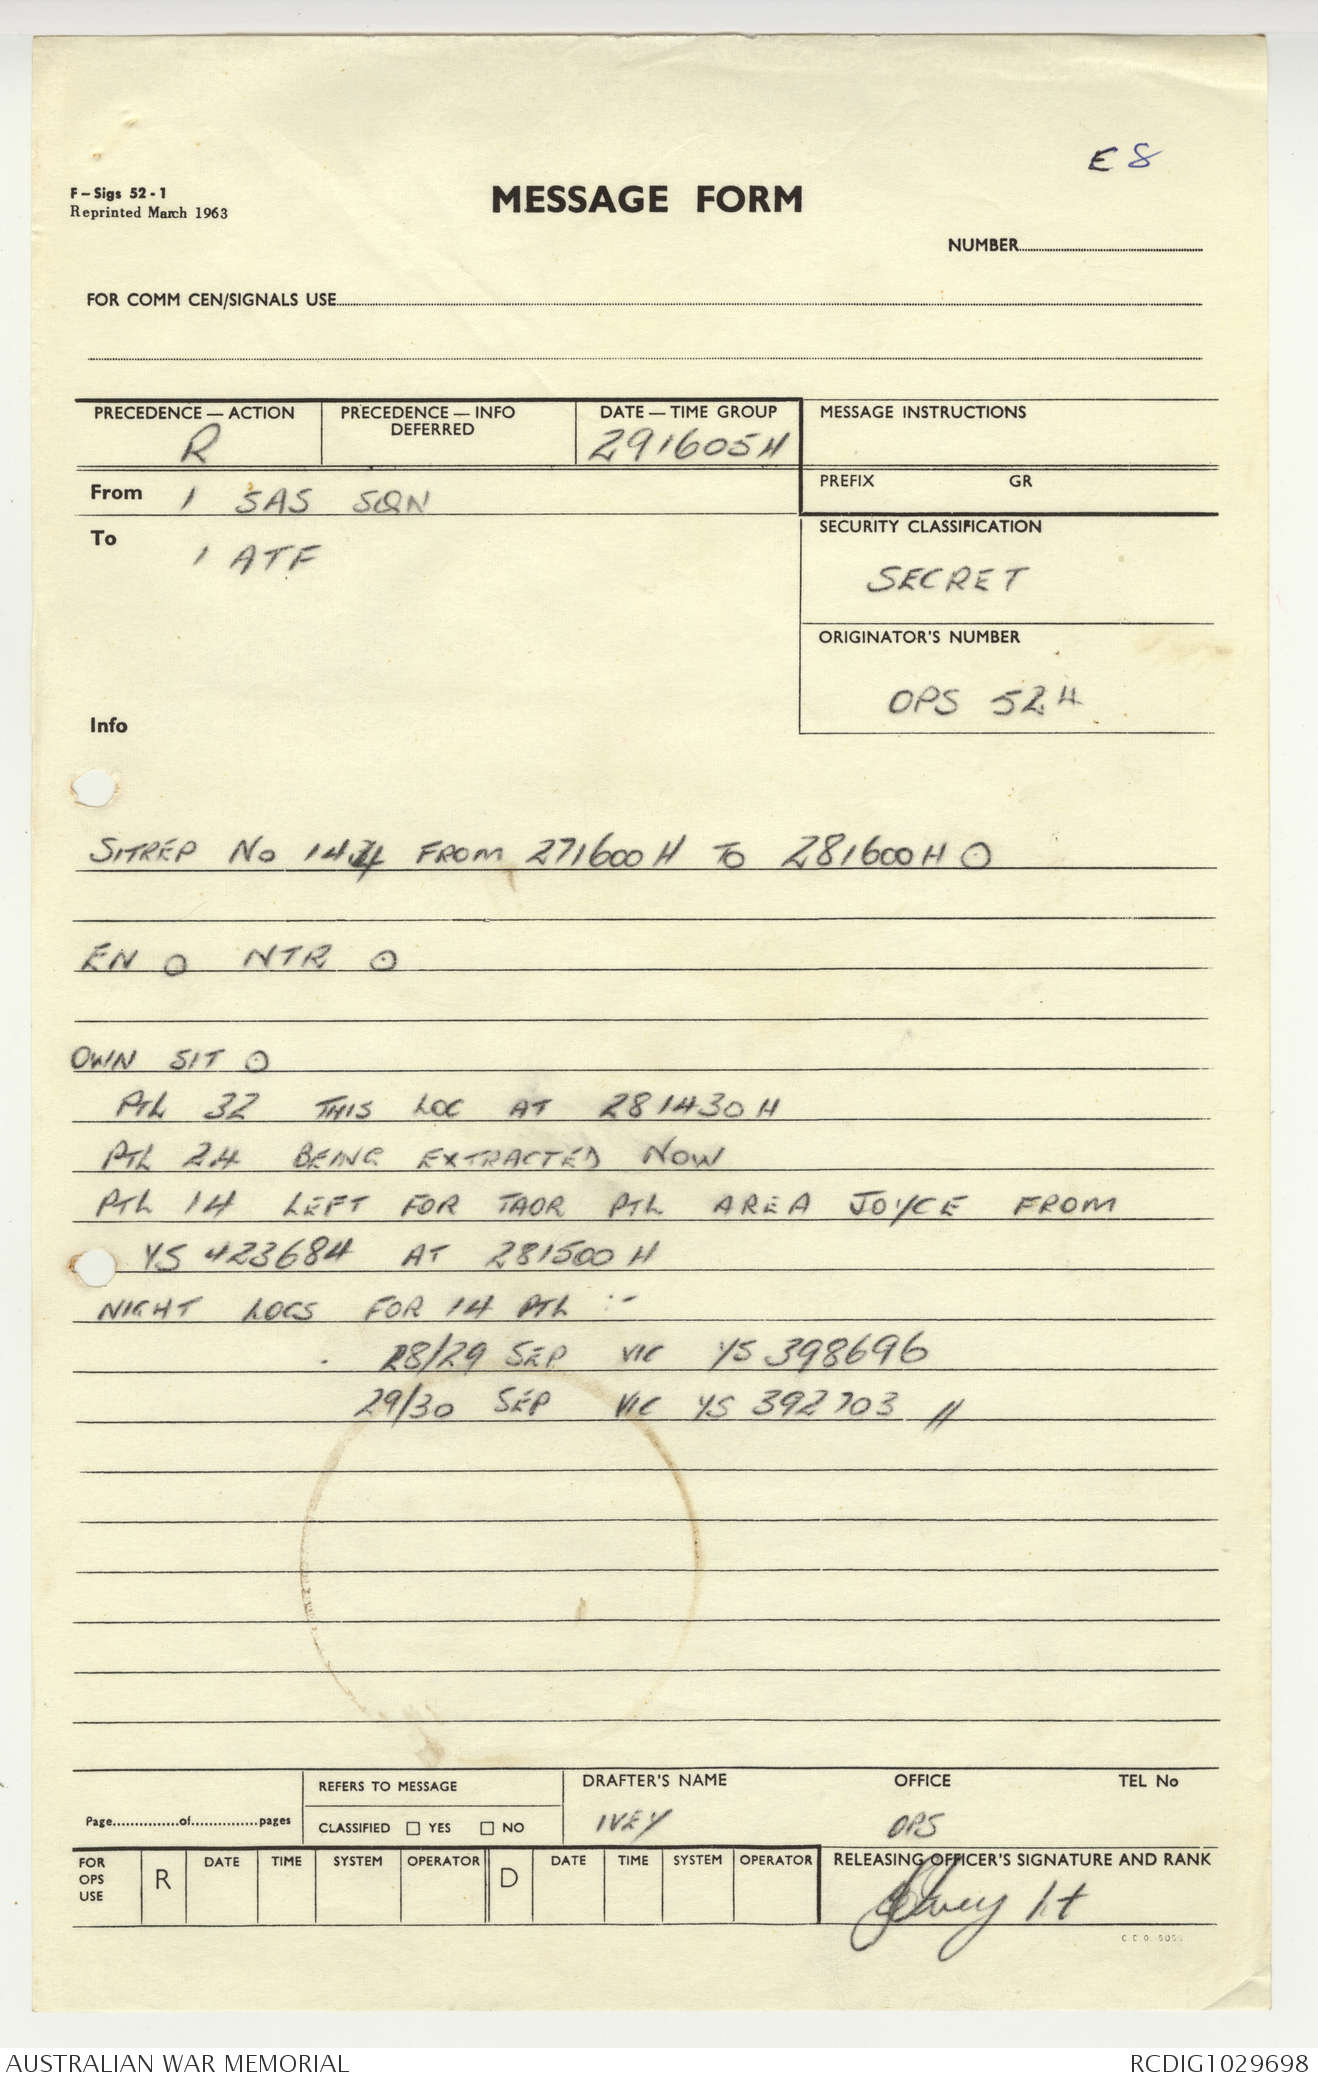 E 8
F – Sigs 52 - 1
Reprinted March 1963
MESSAGE FORM
NUMBER
FOR COMM CEN/SIGNALS USE
PRECEDENCE — ACTION
R
PRECEDENCE — INFO
DEFERRED
DATE — TIME GROUP
291605H
MESSAGE INSTRUCTIONS
PREFIX GR
From 1 SAS SQN
To 1 ATF
SECURITY CLASSIFICATION
SECRET
ORIGINATOR'S NUMBER
OPS 524
Info
SITREP No 144 FROM 271600H TO 281600H ⊙
EN ⊙ NTR ⊙
OWN SIT ⊙
PTL 32 THIS LOC AT 281430H
PTL 24 BEING EXTRACTED NOW
PTL 14 LEFT FOR TAOR PTL AREA JOYCE FROM
YS 423684 AT 281500H
NIGHT LOCS FOR 14 PTL :-
28/29 SEP VIC YS 398696
29/30 SEP VIC YS 392703 //
Page...............of...............pages
REFERS TO MESSAGE
CLASSIFIED ☐ YES ☐ NO
DRAFTER'S NAME
IVEY
OFFICE
OPS
TEL No
FOR
OPS
USE
R
DATE TIME SYSTEM OPERATOR
D
DATE TIME SYSTEM OPERATOR
RELEASING OFFICER'S SIGNATURE AND RANK
Ivey Lt
AUSTRALIAN WAR MEMORIAL
RCDIG1029698